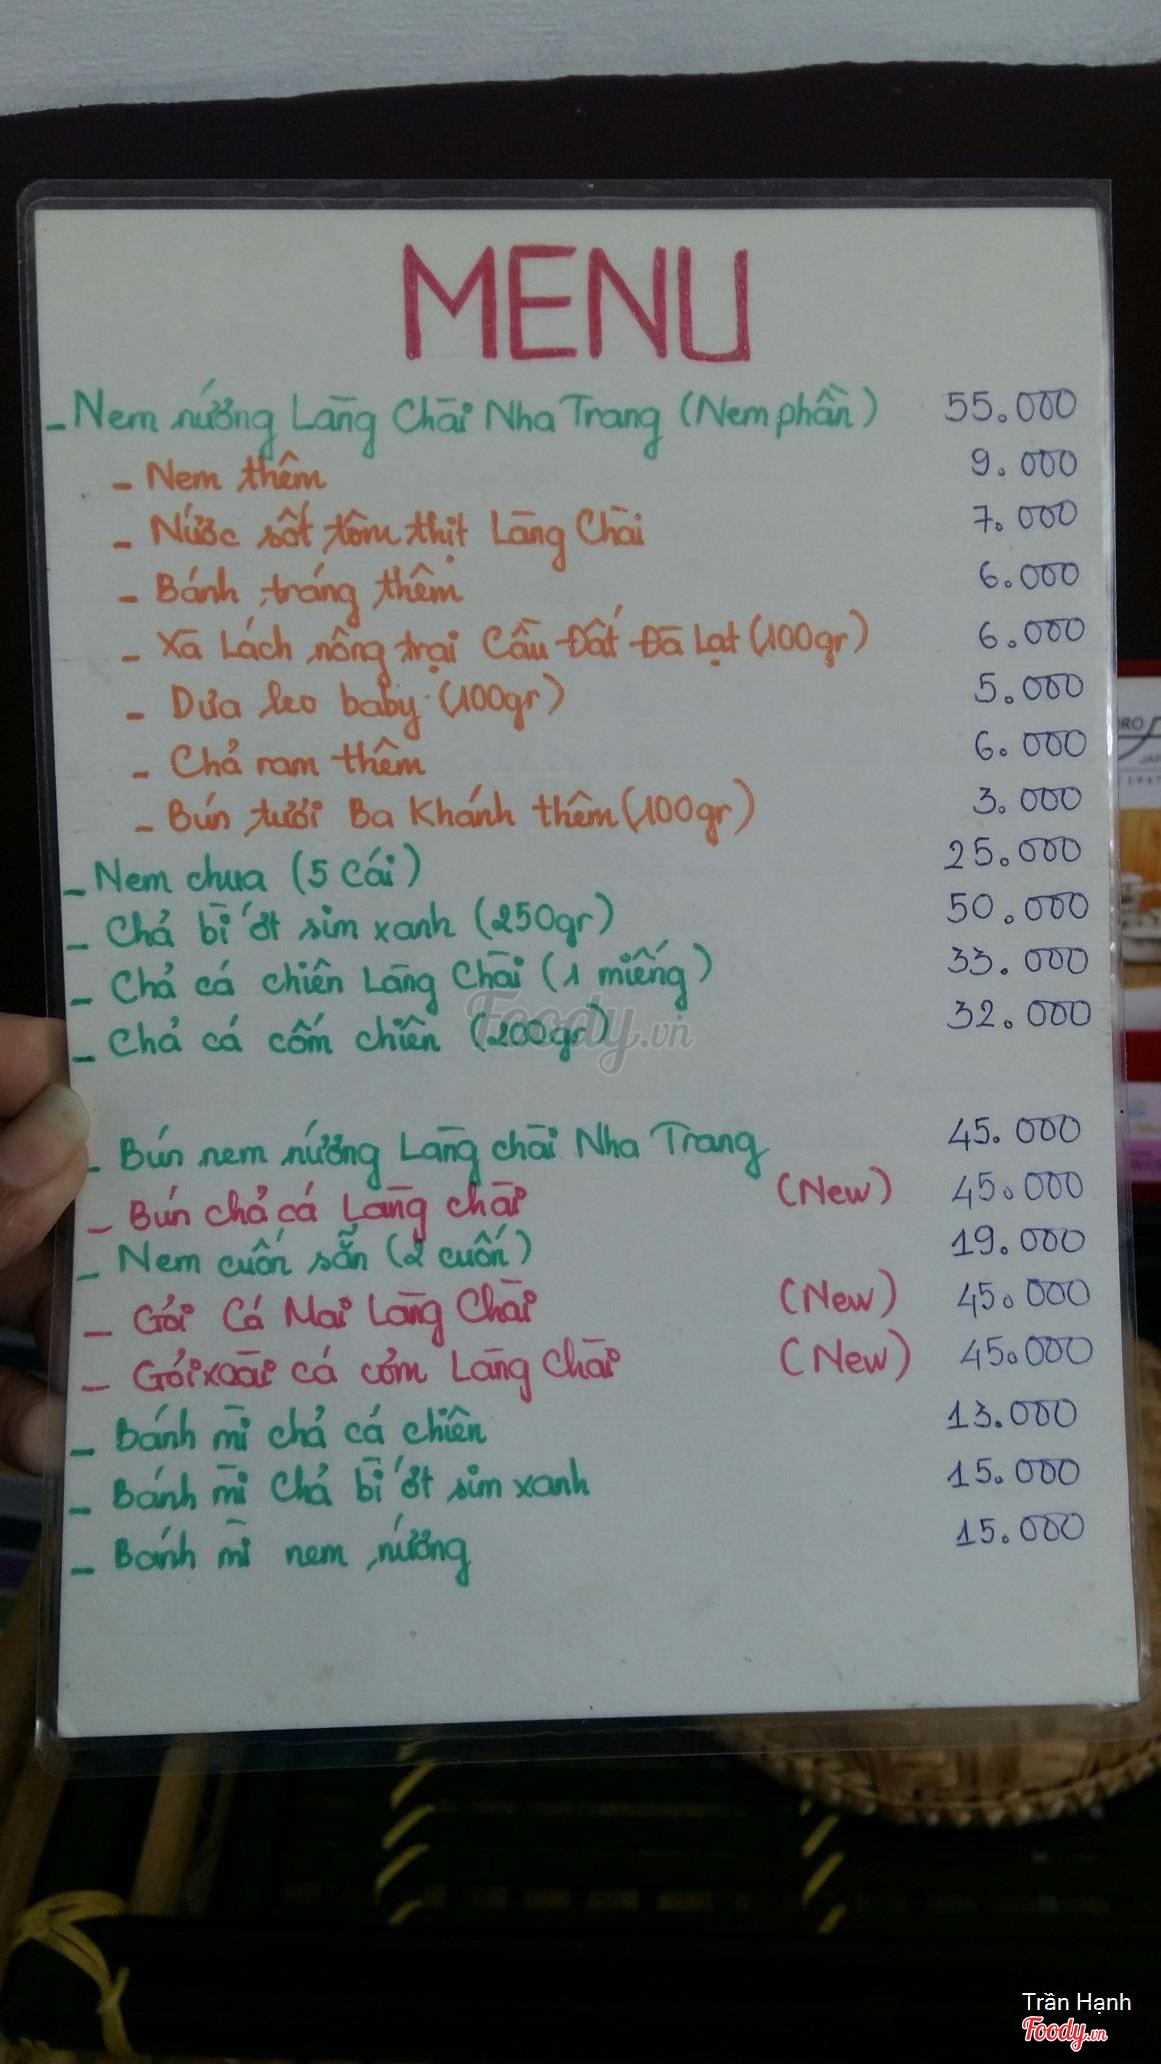 MENU
- Nem nướng Làng Chài Nha Trang (Nem phần) 55.000
- Nem thêm 9.000
- Nước sốt tôm thịt Làng Chài 7.000
- Bánh tráng thêm 6.000
- Xà Lách nông trại Cầu Đất Đà Lạt (100gr) 6.000
- Dưa leo baby (100gr) 5.000
- Chả ram thêm 6.000
- Bún tươi Ba Khánh thêm (100gr) 3.000
- Nem chua (5 Cái) 25.000
- Chả bì ớt sim xanh (250gr) 50.000
- Chả cá chiên Làng Chài (1 miếng) 33.000
- Chả cá cốm chiên (200gr) 32.000
Foody.vn
- Bún nem nướng Làng chài Nha Trang 45.000
- Bún chả cá Làng chài (New) 45.000
- Nem cuốn sẵn (2 cuốn) 19.000
- Gỏi Cá Mai Làng Chài (New) 45.000
- Gỏi xoài cá cơm Làng Chài (New) 45.000
- Bánh mì chả cá chiên 13.000
- Bánh mì Chả bì ớt sim xanh 15.000
- Bánh mì nem nướng 15.000
Trần Hạnh
Foody.vn